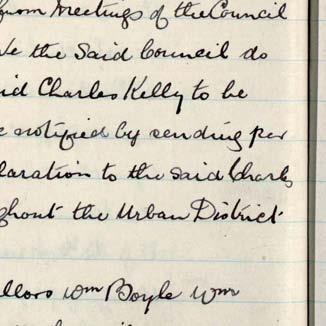 from Meetings of the Council
We the Said Council do
id Charles Kelly to be
notified by sending per
laration to the said Charles
ghout the Urban District
llors Wm Boyle Wm